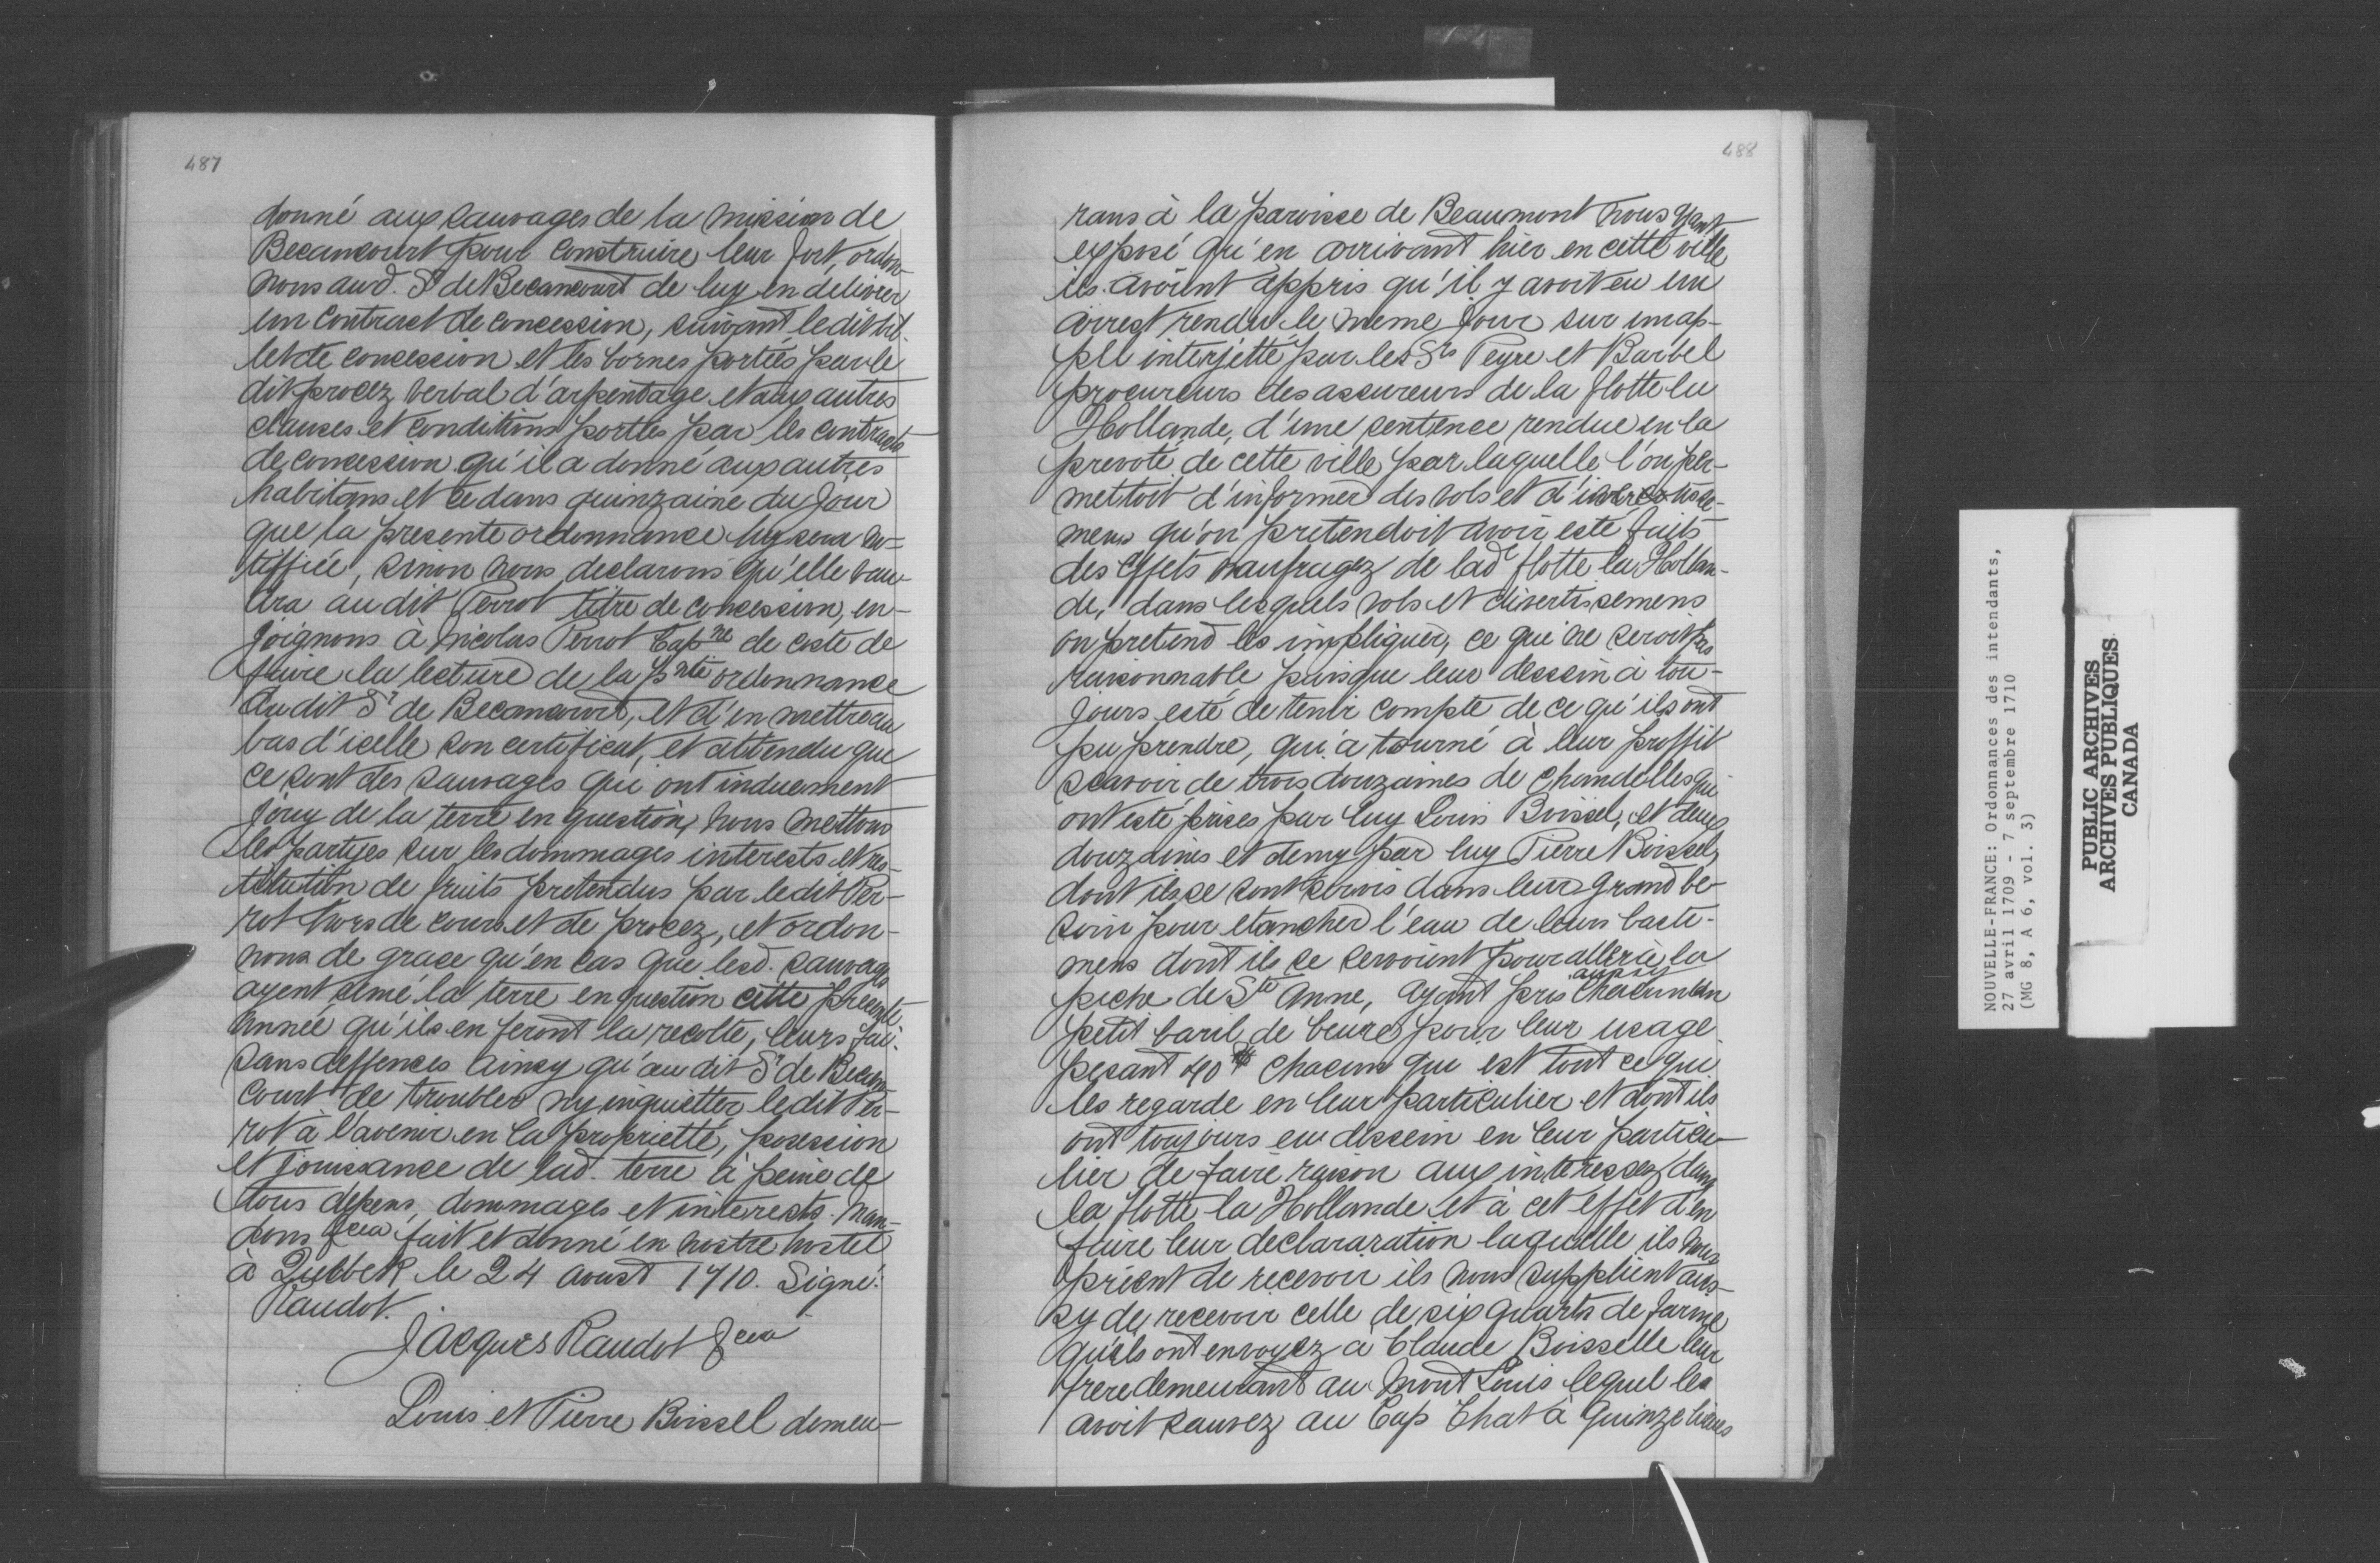 487
donné aux sauvages de la mission de
Becancourt pour construire leur fort, ordon-
nons aud. Sr de Becancourt de luy en delivrer
un contract de concession, suivant ledit bil-
let de concession et les bornes portées par le
dit procez verbal d'arpentage et aux autres
clauses et conditions portées par les contracts
de concession qu'il a donné aux autres
habitans et ce dans quinzaine du jour
que la presente ordonnance luy sera no=
tiffiée, sinon nous declarons qu'elle vau-
dra au dit Perrot titre de concession, en-
joignons à Nicolas Perrot Capne de coste de
faire la lecture de la pnte ordonnance
audit Sr de Becancourt, et d'en mettre au
bas d'icelle son certificat, et attendu que
ce sont des sauvages qui ont induement
jouy de la terre en question, nous mettons
les partyes sur les dommages interests et res-
titution de fruits pretendus par ledit Per-
rot hors de cours et de procez, et ordon-
nons de grace qu'en cas que lesd. sauvages
ayent semé la terre en question cette presente
année qu'ils en feront la recolte, leurs fai-
sans deffences ainsy qu'au dit Sr de Becan-
court de troubler ny inquietter ledit Per-
rot à l'avenir en la proprietté, posession
et jouissance de lad. terre à peine de
tous depens, dommages et interests. Man-
dons &cea fait et donné en nostre hostel
à Quebbek le 24 aoust 1710. Signé:
Raudot.
Jacques Raudot &cea
Louis et Pierre Boissel demeu-
488
rans à la paroisse de Beaumont nous ayant
exposé qu'en arrivant hier en cette ville
ils avoient appris qu'il y avoit eu un
arrest rendu le meme jour sur un ap-
pel interjetté par les Srs Peyre et Barbel
procureurs des assureurs de la flotte la
Hollande, d'une sentence rendue en la
prevoté de cette ville par laquelle l'on per-
mettoit d'informer des vols et
mens qu'on pretendoit avoir esté faits
des effets naufragez de lade flotte la Hollan-
de, dans lesquels vols et divertissemens
on pretend les impliquer, ce qui ne seroit pas
raisonnable puisque leur dessein à tou-
jours esté de tenir compte de ce qu'ils ont
pu prendre, qui a tourné à leur proffit
scavoir de trois douzaines de chandelles qui
ont esté prises par luy Louis Boissel, et deux
douzaines et demy par luy Pierre Boissel,
dont ils se sont servis dans leur grand be-
soin pour etancher l'eau de leurs basti-
mens dont ils se servoient pour aller à la
peche de Ste Anne, ayant pris aussy chacun un
petit baril de beure pour leur usage
pesant 40 ℔ chacun qui est tout ce qui
les regarde en leur particulier et dont ils
ont toujours eu dessein en leur particu-
lier de faire raison aux interessez dans
la flotte la Hollande et à cet effet d'en
faire leur declararation laquelle ils nous
prient de recevoir ils nous supplient aus-
sy de recevoir celle de six quarts de farine
qu'ils ont envoyez à Claude Boisselle leur
frere demeurant au Mont Louis lequel les
avoit sauvez au Cap Chat à quinze lieues
NOUVELLE-FRANCE: Ordonnances des intendants,
27 avril 1709 - 7 septembre 1710
(MG 8, A 6, vol. 3)
PUBLIC ARCHIVES
ARCHIVES PUBLIQUES
CANADA